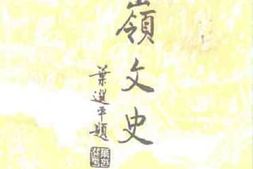 嶺文史
葉選平題